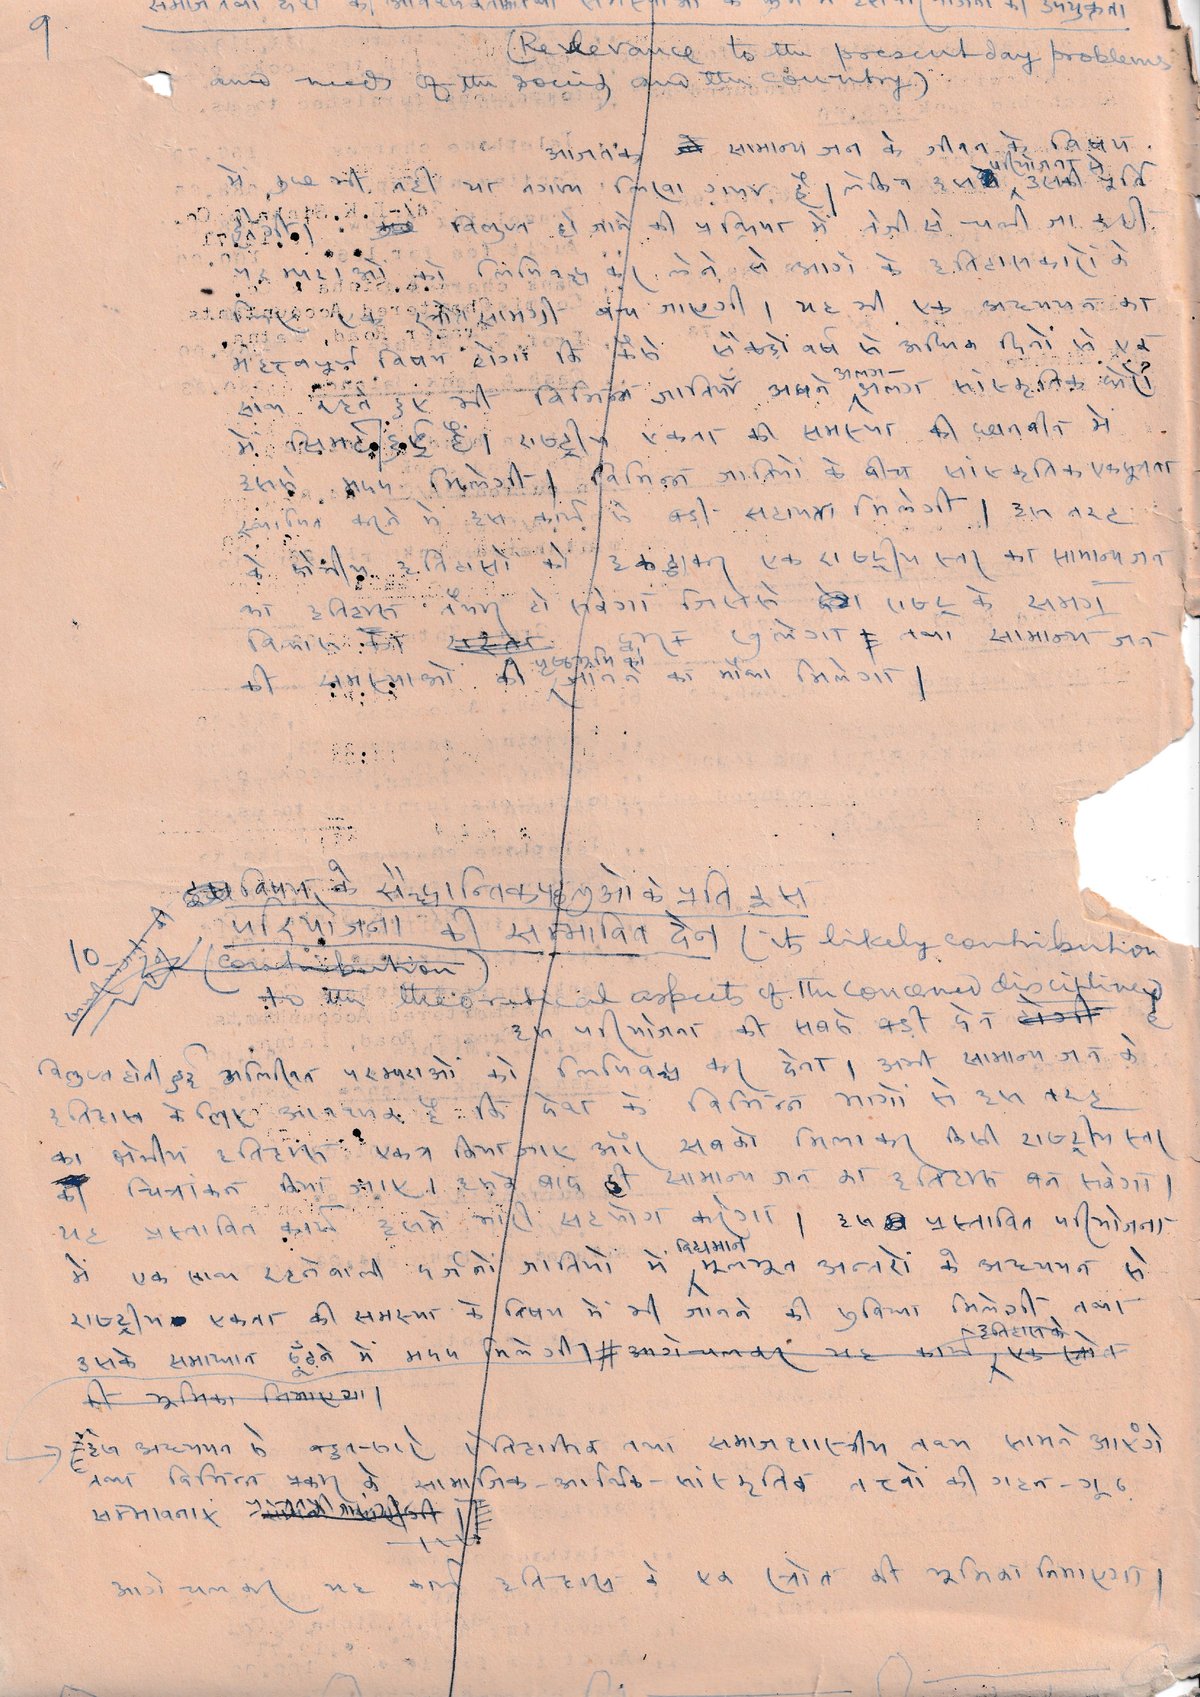 9
(Relevance to the present day problems
and needs of the society and the country)
आजतक सामान्य जन के जीवन के विषय
में कुछ भी नहीं या नगण्य लिखा गया है। लेकिन इस परियोजना से उसकी पूर्ति
होगी। विलुप्त हो जाने की प्रक्रिया में तेजी से चली जा रही
परम्पराओं को लिपिबद्ध कर लेने से आगे के इतिहासकारों के
लिए एक स्रोत सामग्री बच जाएगी। यह भी एक अध्ययन का
महत्वपूर्ण विषय होगा कि कैसे सैंकड़ों वर्ष से अधिक दिनों से एक
साथ रहते हुए भी विभिन्न जातियाँ अपने अलग अलग सांस्कृतिक
में सिमटी हुई हैं। राष्ट्रीय एकता की समस्या की छानबीन में
इससे मदद मिलेगी। विभिन्न जातियों के बीच सांस्कृतिक एकसूत्रता
स्थापित करने में इस कार्य से बड़ी सहायता मिलेगी। इस तरह
के क्षेत्रीय इतिहासों को इकट्ठाकर एक राष्ट्रीय स्तर का सामान्य जन
का इतिहास तैयार हो सकेगा जिससे राष्ट्र के समग्र
विकास का तथा सामान्य जन
की समस्याओं की पृष्ठभूमि को जानने का मौका मिलेगा।
विषय के सैद्धान्तिक पहलुओं के प्रति इस
परियोजना की सम्भावित देन (its likely contribution
10 (contribution)
to the theoretical aspects of the concerned discipline)
इस परियोजना की सबसे बड़ी देन होगी है
विलुप्त होती हुई अलिखित परम्पराओं को लिपिबद्ध कर देना। अभी सामान्य जन के
इतिहास के लिए आवश्यक है कि देश के विभिन्न भागों से इस तरह
का क्षेत्रीय इतिहास एकत्र किया जाए और सबको मिलाकर किसी राष्ट्रीय स्तर
का चित्रांकन किया जाए। इसके बाद ही सामान्य जन का इतिहास बन सकेगा।
यह प्रस्तावित कार्य इसमें भारी सहयोग करेगा। इस प्रस्तावित परियोजना
में एक साथ रहनेवाली दर्जनों जातियों में विद्यमान मूलभूत अन्तरों के अध्ययन से
राष्ट्रीय एकता की समस्या के विषय में भी जानने की सुविधा मिलेगी तथा
उसके समाधान ढूँढने में मदद मिलेगी। आगे चलकर यह कार्य इतिहास के एक स्रोत
की भूमिका निभाएगा।
इस अध्ययन से बहुत सारे ऐतिहासिक तथा समाजशास्त्रीय तथ्य सामने आएंगे
तथा विभिन्न प्रकार के सामाजिक-आर्थिक-सांस्कृतिक तत्वों की गहन-गूढ़
सम्भावनाएं
आगे चलकर यह कार्य इतिहास के एक स्रोत की भूमिका निभाएगा।